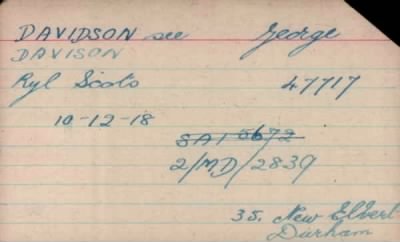 DAVIDSON see George
DAVISON
Ryl Scots 47717
10-12-18
SAI 5672
2/MD/2839
35. New Elvet
Durham